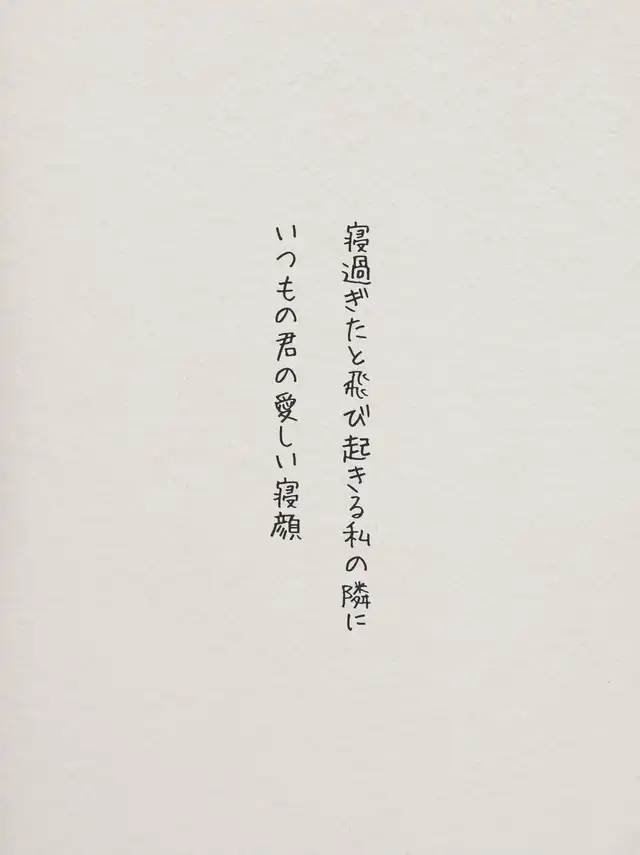 寝過ぎたと飛び起きる私の隣に
いつもの君の愛しい寝顔